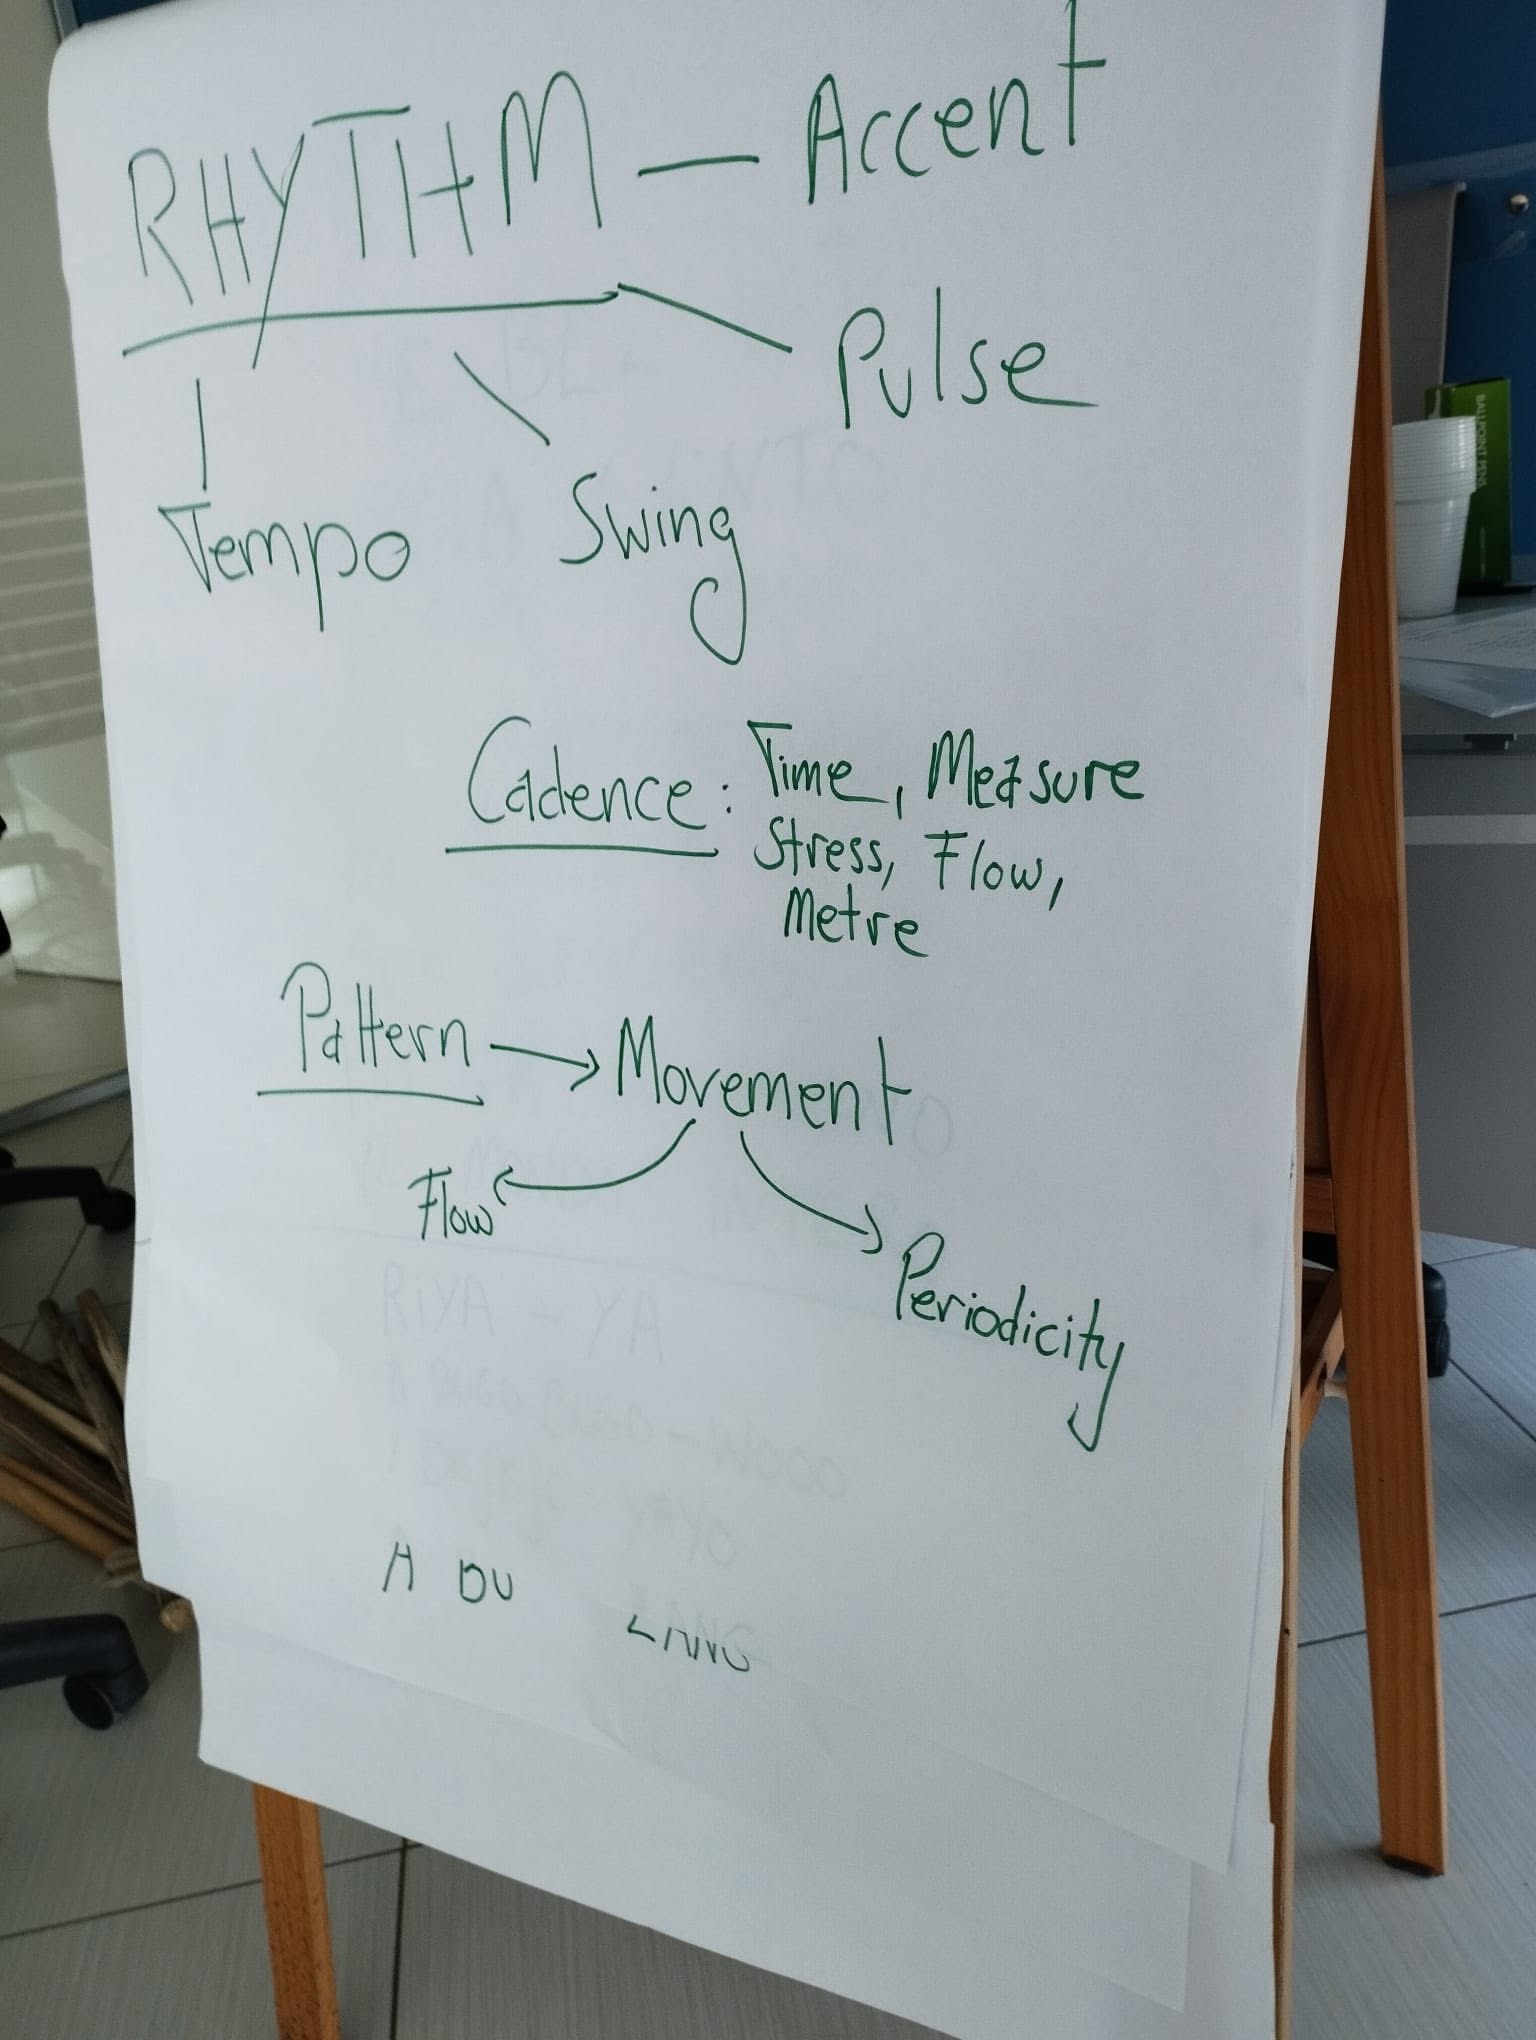 RHYTHM — Accent
Pulse
Tempo
Swing
Cadence: Time, Measure
Stress, Flow,
Metre
Pattern → Movement
Flow
Periodicity
RiYA - YA
A DU
LANG
BALLPOINT PENS